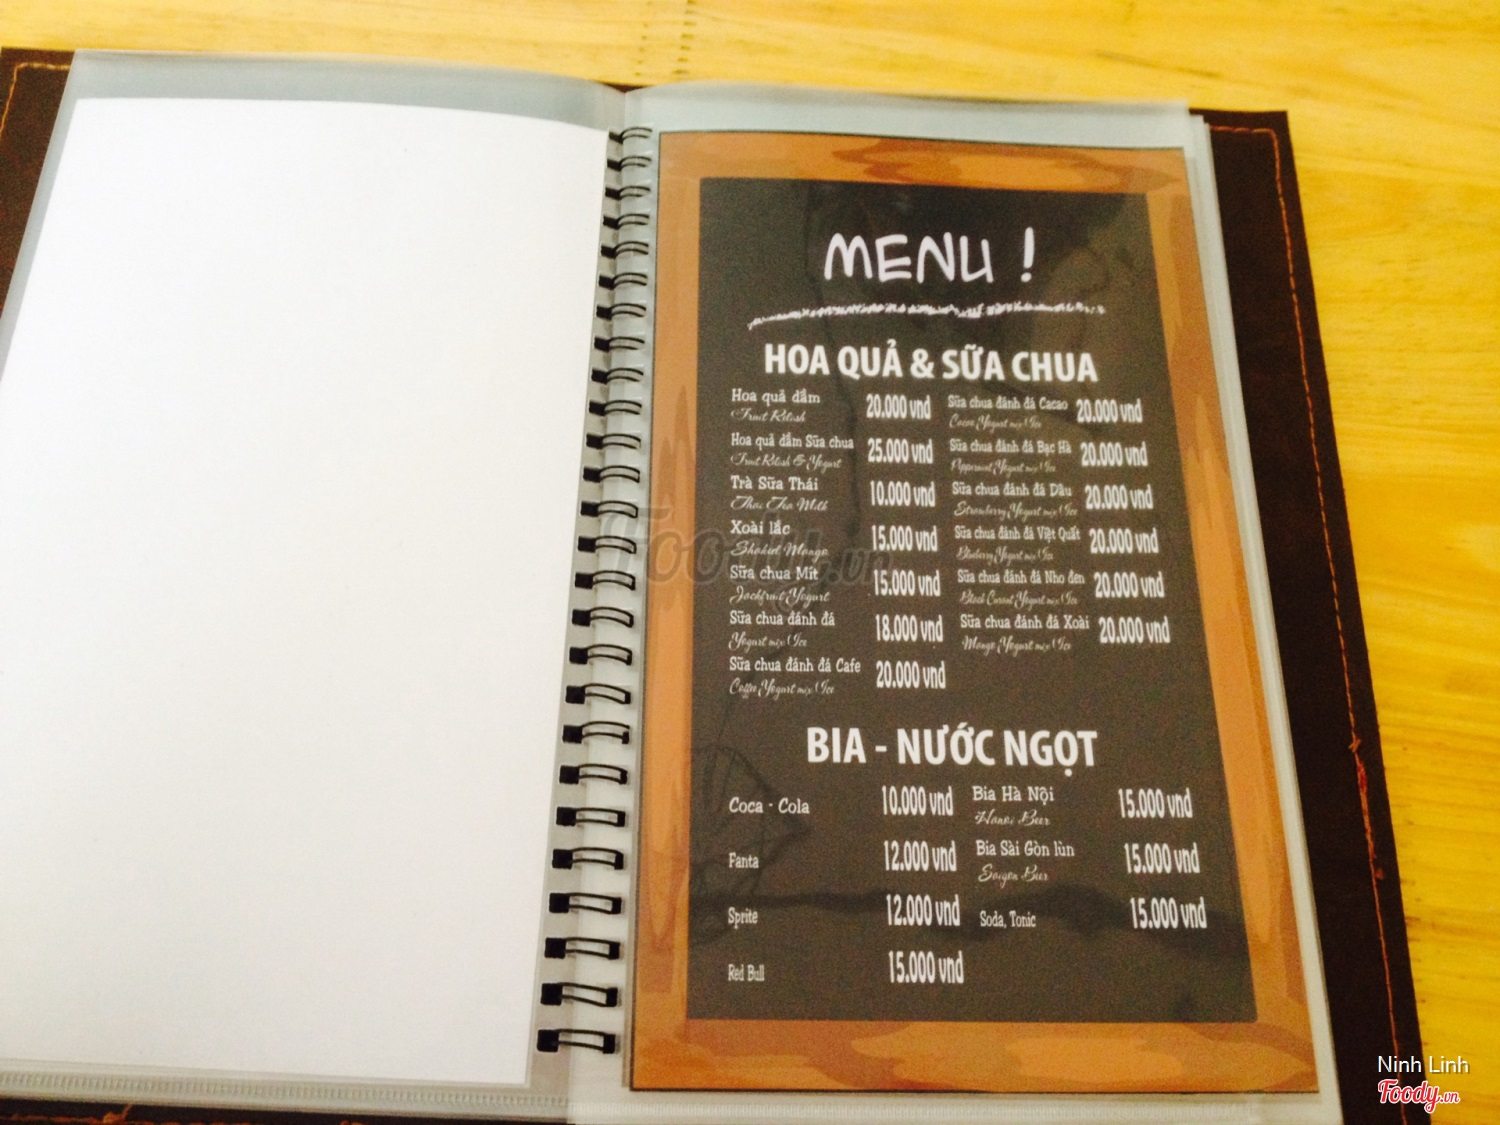 MENU !
HOA QUẢ & SỮA CHUA
Hoa quả dầm 20.000 vnd
Fruit Relish
Hoa quả dầm Sữa chua 25.000 vnd
Fruit Relish & Yogurt
Trà Sữa Thái 10.000 vnd
Thai Tea Milk
Xoài lắc 15.000 vnd
Shaked Mango
Sữa chua Mít 15.000 vnd
Jackfruit Yogurt
Sữa chua đánh đá 18.000 vnd
Yogurt mix Ice
Sữa chua đánh đá Cafe 20.000 vnd
Coffee Yogurt mix Ice
Sữa chua đánh đá Cacao 20.000 vnd
Cacao Yogurt mix Ice
Sữa chua đánh đá Bạc Hà 20.000 vnd
Peppermint Yogurt mix Ice
Sữa chua đánh đá Dâu 20.000 vnd
Strawberry Yogurt mix Ice
Sữa chua đánh đá Việt Quất 20.000 vnd
Blueberry Yogurt mix Ice
Sữa chua đánh đá Nho đen 20.000 vnd
Black Currant Yogurt mix Ice
Sữa chua đánh đá Xoài 20.000 vnd
Mango Yogurt mix Ice
BIA - NƯỚC NGỌT
Coca - Cola 10.000 vnd
Fanta 12.000 vnd
Sprite 12.000 vnd
Red Bull 15.000 vnd
Bia Hà Nội 15.000 vnd
Hanoi Beer
Bia Sài Gòn lùn 15.000 vnd
Saigon Beer
Soda, Tonic 15.000 vnd
Foody.vn
Ninh Linh
Foody.vn